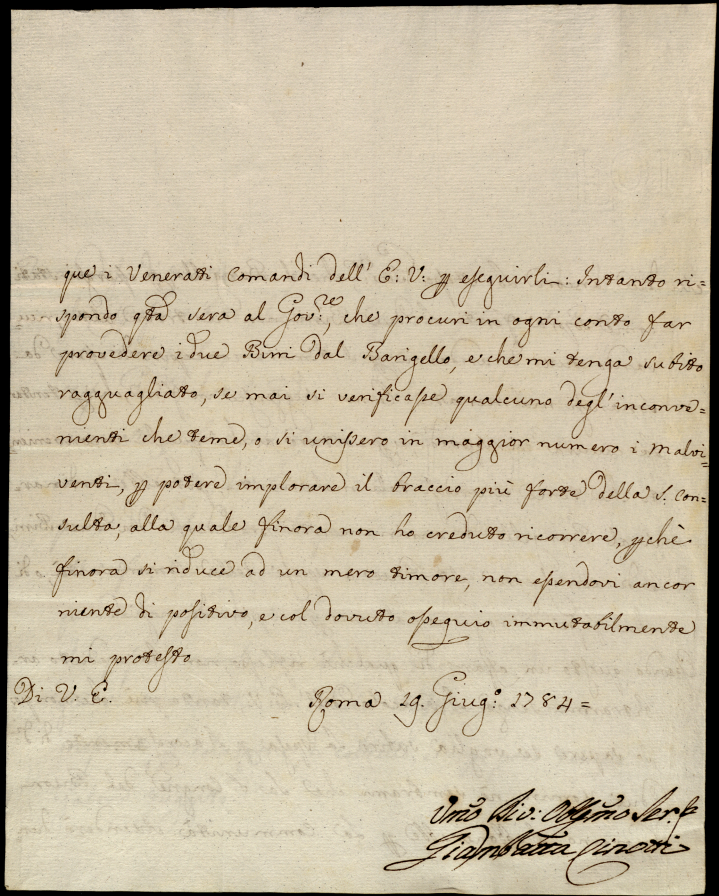 que i Venerati Comandi dell' E: V: p eseguirli: Intanto ri=
spondo qta sera al Gov:re, che procuri in ogni conto far
provedere i due Birri dal Barigello, e che mi tenga subito
ragguagliato, se mai si verificasse qualcuno degl'inconve=
nienti che teme, o si unissero in maggior numero i Malvi=
venti, p potere implorare il braccio più forte della S. Con=
sulta, alla quale finora non ho creduto ricorrere, pchè
finora si riduce ad un mero timore, non essendovi ancor
niente di positivo, e col dovuto ossequio immutabilmente
mi protesto
Di V. E. Roma 19. Giug:o 1784=
Umo Div: Obblmo Ser
Giambatta